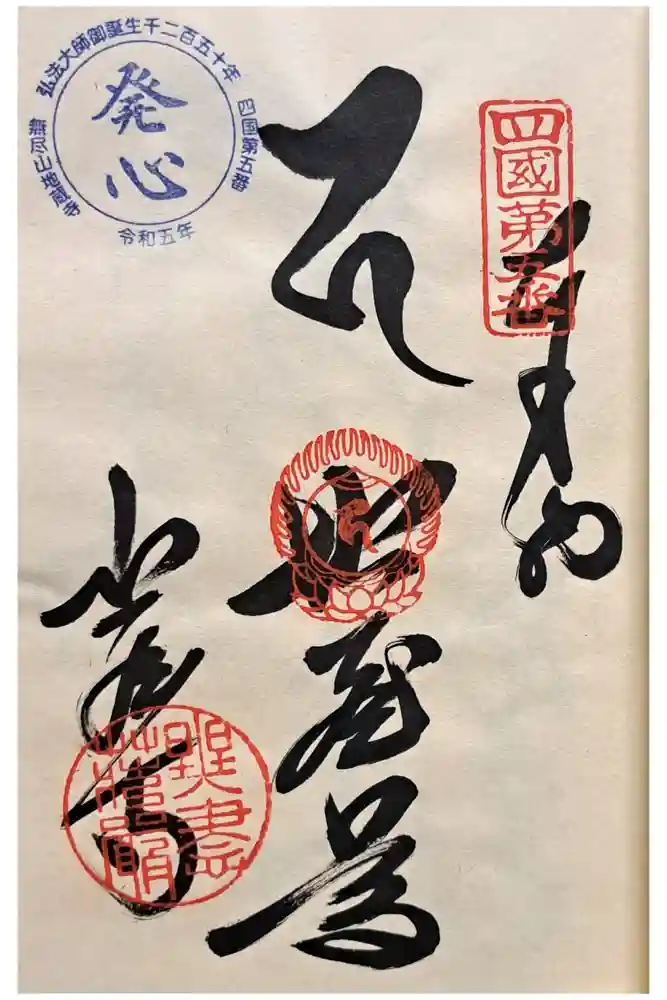 四國第五番
奉納
地蔵尊
地蔵寺
弘法大師御誕生千二百五十年
四国第五番
令和五年
無尽山地蔵寺
発心